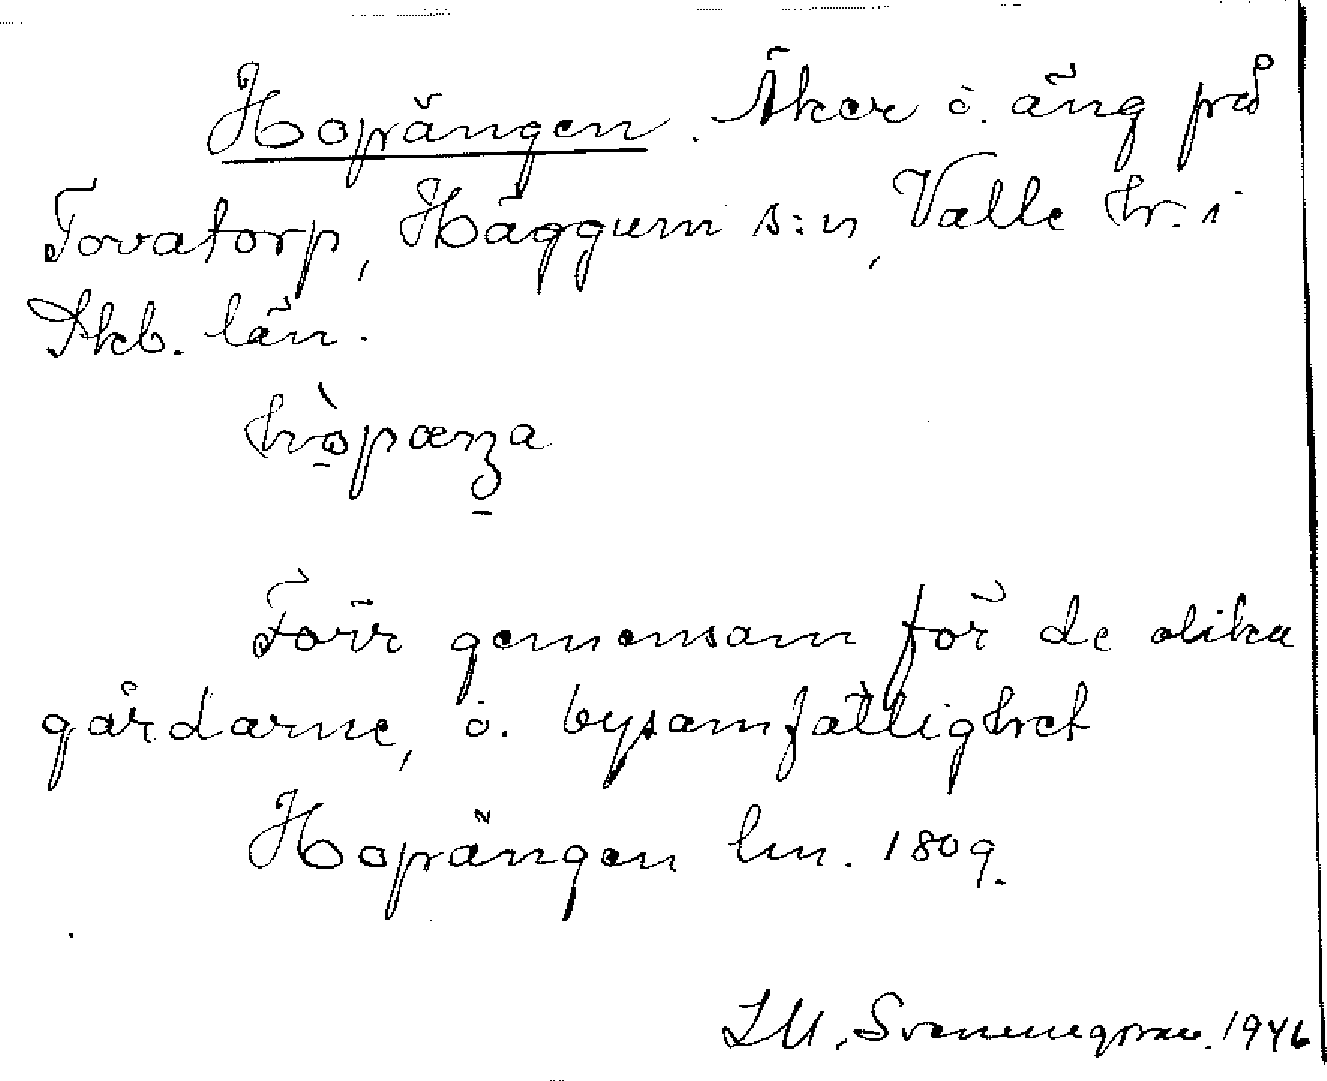 Hopängen. Åker o. äng på
Tovatorp, Häggum s:n, Valle hr. i
Skb. län.
hòpæŋa
Förr gemensam för de olika
gårdarne, o. bysamfällighet
Hopängen lm. 1809.
1946